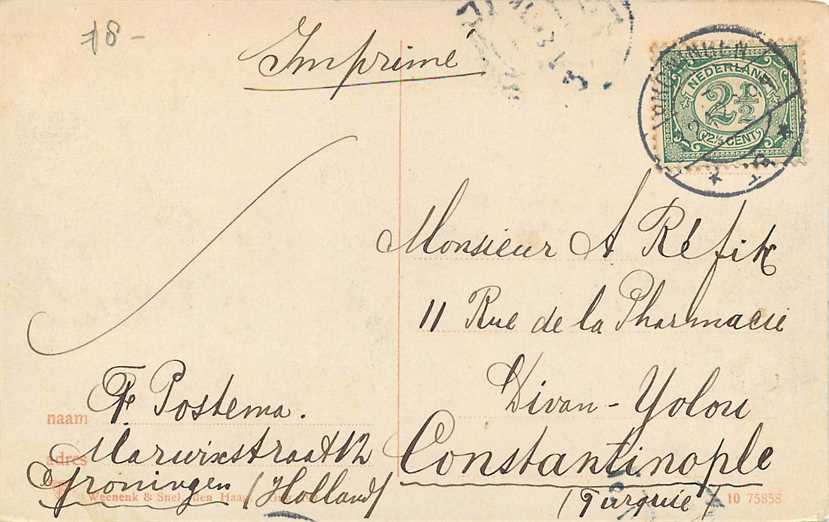 18-
Imprimé
NEDERLAND
2½
2½ CENT
Monsieur A Réfik
11 Rue de la Pharmacie
Divan-Yolou
Constantinople
(Turquie)
naam F. Postema.
adres Marwixstraat 12
Groningen (Holland)
Weenenk & Snel, den Haag
10 75858